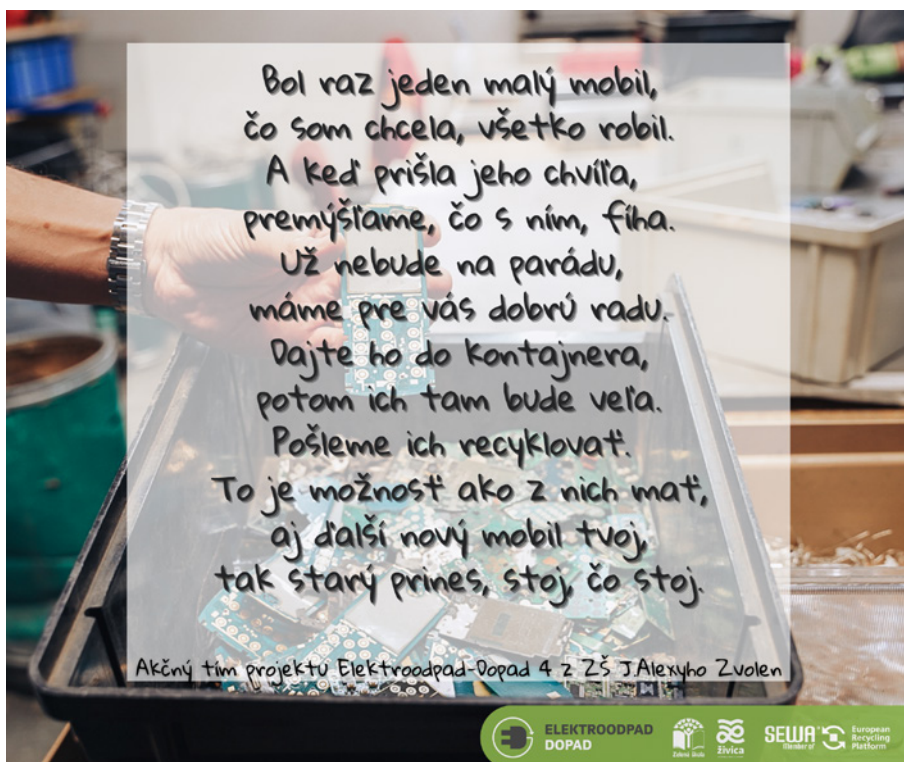 Bol raz jeden malý mobil,
čo som chcela, všetko robil.
A keď prišla jeho chvíľa,
premýšľame, čo s ním, fíha.
Už nebude na parádu,
máme pre vás dobrú radu.
Dajte ho do kontajnera,
potom ich tam bude veľa.
Pošleme ich recyklovať.
To je možnosť ako z nich mať,
aj ďalší nový mobil tvoj,
tak starý prines, stoj, čo stoj.
Akčný tím projektu Elektroodpad-Dopad 4 z ZŠ J.Alexyho Zvolen
ELEKTROODPAD
DOPAD
Zelená škola
živica
SEWA
Member of
European
Recycling
Platform